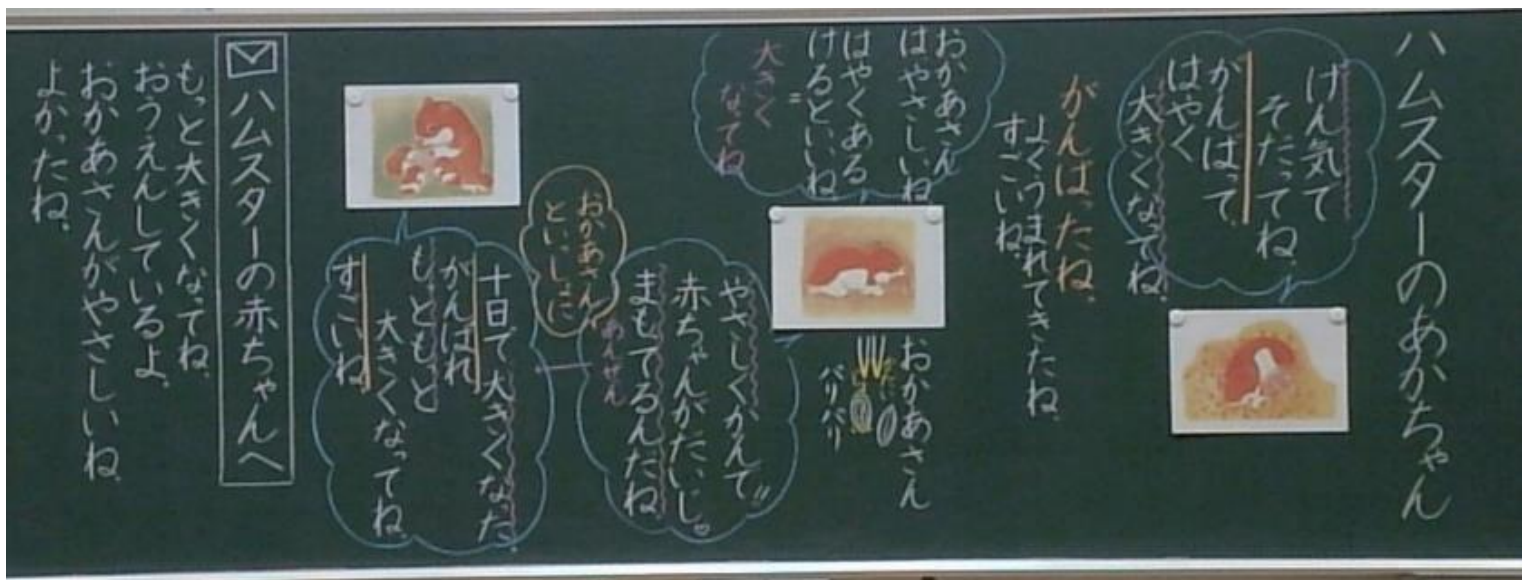 ハムスターのあかちゃん
げん気で
そだってね。
がんばって、
はやく
大きくなってね。
がんばったね。
よくうまれてきたね。
すごいね。
おかあさん
はやさしいね
はやくある
けるといいね
大きく
なってね
おかあさん
バリバリ
やさしくかんで
赤ちゃんがだいじ。
まもてるんだね。
あんぜん
おかあさん
といっしょに
十日で大きくなった。
がんばれ
もっともっと
大きくなってね。
すごいね。
ハムスターの赤ちゃんへ
もっと大きくなってね。
おうえんしているよ。
おかあさんがやさしいね。
よかったね。